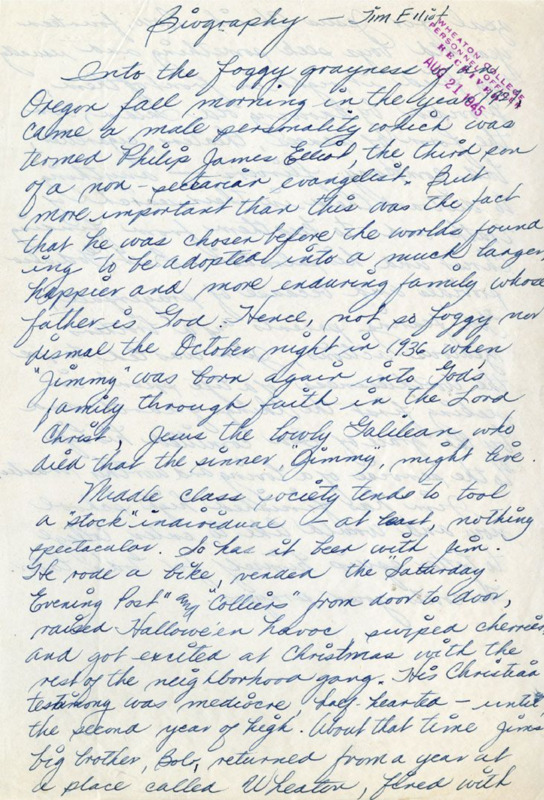 Biography – Jim Elliot
WHEATON COLLEGE
PERSONNEL OFFICE
RECEIVED
AUG 21 1945
Into the foggy grayness of an
Oregon fall morning in the year
came a male personality which was
termed Philip James Elliot, the third son
of a non-sectarian evangelist. But
more important than this was the fact
that he was chosen before the worlds found
ing to be adopted into a much larger,
happier and more enduring family whose
father is God. Hence, not so foggy nor
dismal the October night in 1936 when
"Jimmy" was born again into God's
family through faith in the Lord
Christ, Jesus the lowly Galilean who
died that the sinner, "Jimmy", might live.
Middle class society tends to tool
a "stock" individual – at least, nothing
spectacular. So has it been with Jim.
He rode a bike, vended the Saturday
Evening Post" and "Colliers" from door to door,
raised Hallowe'en havoc, swiped cherries,
and got excited at Christmas with the
rest of the neighborhood gang. His Christian
testimony was mediocre, half-hearted – until
the second year of high. About that time Jim's
big brother, Bob, returned from a year at
a place called Wheaton, fired with